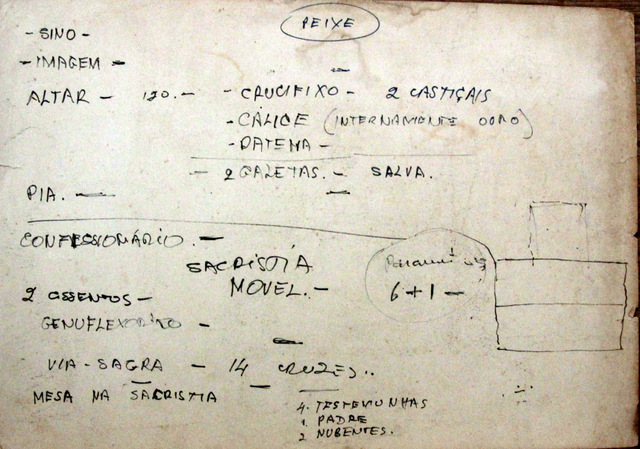 PEIXE
- SINO -
- IMAGEM -
ALTAR - 120. - - CRUCIFIXO - 2 CASTIÇAIS
- CÁLICE (INTERNAMENTE OURO)
- PATENA -
- 2 GALETAS. - SALVA.
PIA. -
CONFESSIONÁRIO. -
SACRISTIA
MOVEL. -
6 + 1 -
2 ASSENTOS -
GENUFLEXÓRIO -
VIA-SAGRA - 14 CRUZES..
MESA NA SACRISTIA
4. TESTEMUNHAS
1. PADRE
2 NUBENTES.